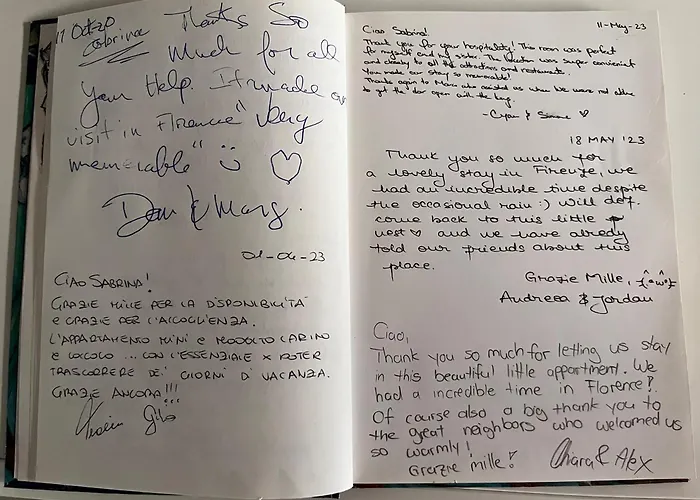 11 Oct 20
Sabrina Thanks So
Much for all
Your Help. It made our
visit in Florence "very
memorable" :)
Dan & Mary.
01-04-23
CIAO SABRINA!
GRAZIE MILLE PER LA DISPONIBILITA'
E GRAZIE PER L'ACCOGLIENZA.
L'APPARTAMENTO MINI E MODOLTO CARINO
E COCCOLO ... CON L'ESSENZIALE X POTER
TRASCORRERE DEI GIORNI DI VACANZA.
GRAZIE ANCORA!!!
11-May-23
Ciao Sabrina!
Thank you for your hospitality! This room was perfect
for myself and my sister. The location was super convenient
and close by to all the attractions and restaurants.
You made our stay so memorable!
Thanks again to Marco who assisted us when we were not able
to get the door open with the key.
18 MAY '23
Thank you so much for
a lovely stay in Firenze, we
had an incredible time despite
the occasional rain :) Will def.
come back to this little
nest ♡ and we have already
told our friends about this
place.
Grazie Mille,
Andreea & Jordan
Ciao,
Thank you so much for letting us stay
in this beautiful little appartment. We
had a incredible time in Florence!
Of course also a big thank you to
the great neighbors who welcomed us
so warmly!
Grazie mille!
Chara & Alex